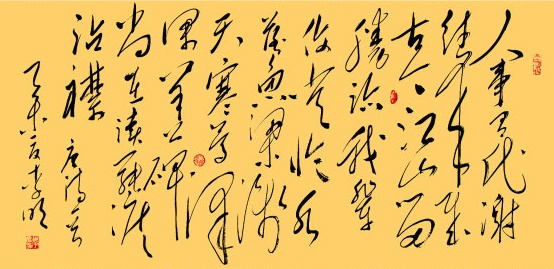 人事有代谢
往来成
古今江山留
胜迹我辈
复登临水
落鱼梁浅
天寒梦泽
深羊公碑
尚在读罢泪
沾襟 唐诗